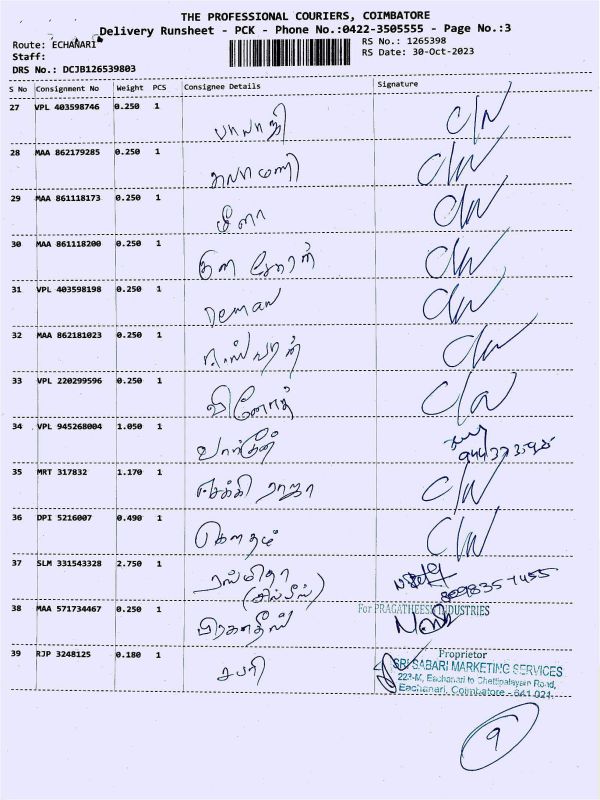 THE PROFESSIONAL COURIERS, COIMBATORE
Delivery Runsheet - PCK - Phone No.:0422-3505555 - Page No.:3
Route: ECHANARI
RS No.: 1265398
Staff:
RS Date: 30-Oct-2023
DRS No.: DCJB126539803
S No Consignment No Weight PCS Consignee Details Signature
27 VPL 403598746 0.250 1 பாலாஜி C/W
28 MAA 862179285 0.250 1 C/W
29 MAA 861118173 0.250 1 மீனா C/W
30 MAA 861118200 0.250 1 C/W
31 VPL 403598198 0.250 1 Deman C/W
32 MAA 862181023 0.250 1 C/W
33 VPL 220299596 0.250 1 வினோத் C/W
34 VPL 945268004 1.050 1
35 MRT 317832 1.170 1 ராஜா C/W
36 DPI 5216007 0.490 1 கௌதம் C/W
37 SLM 331543328 2.750 1
38 MAA 571734467 0.250 1 பிரகதீஸ்
For PRAGATHEESH INDUSTRIES
Proprietor
39 RJP 3248125 0.180 1 சபரி
SRI SABARI MARKETING SERVICES
223-M, Eachanari to Chettipalayam Road,
Eachanari, Coimbatore - 641 021.
9